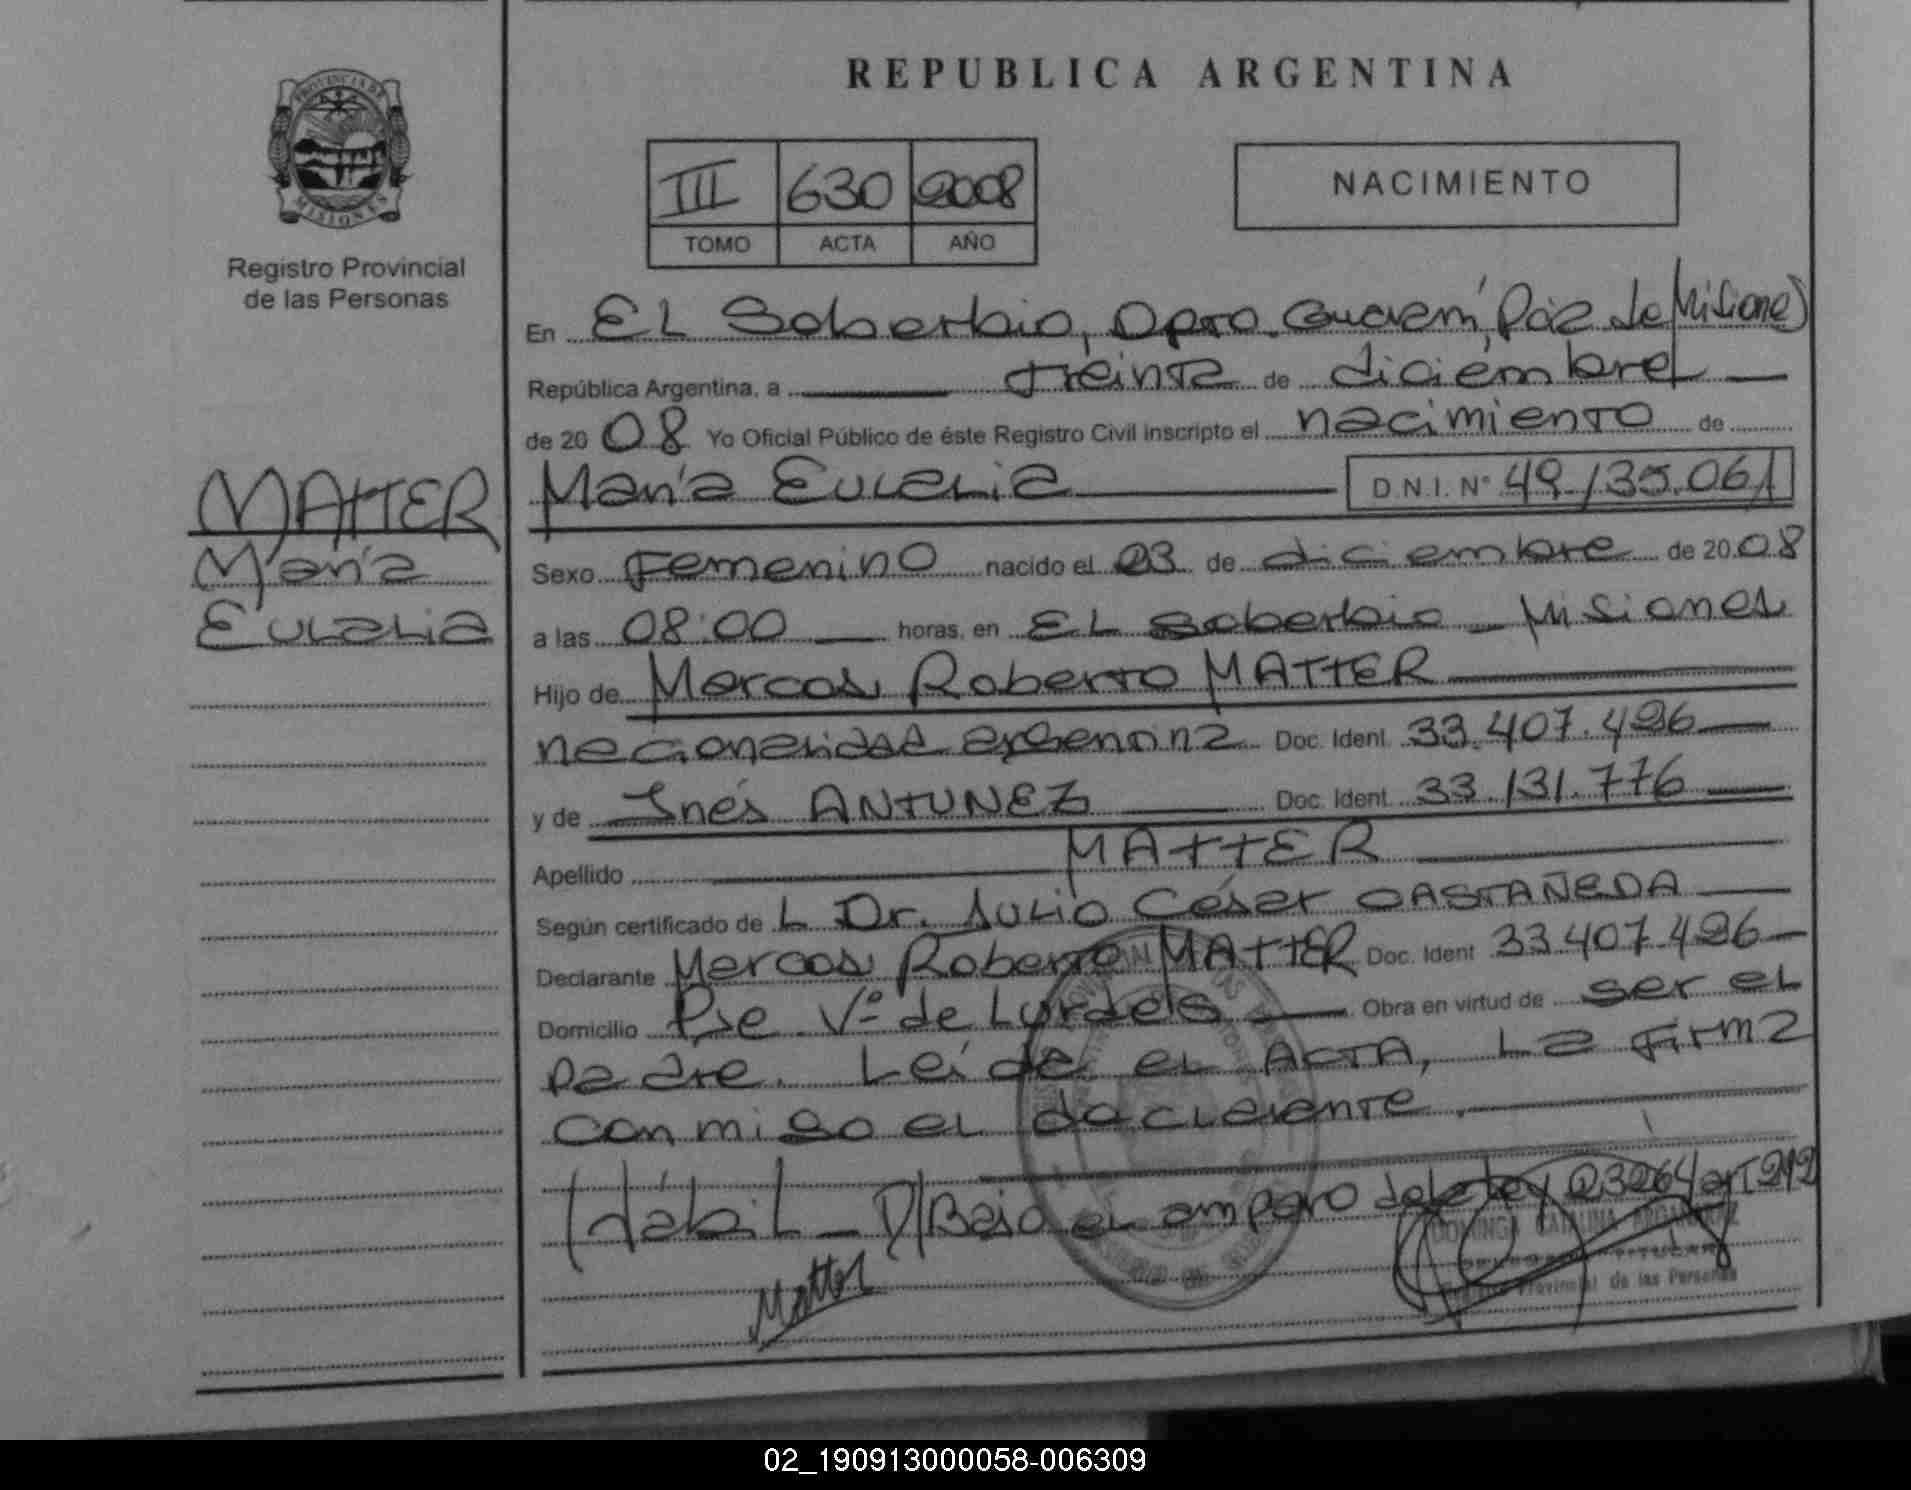 REPUBLICA ARGENTINA
PROVINCIA DE
MISIONES
Registro Provincial
de las Personas
III 630 2008
TOMO ACTA AÑO
NACIMIENTO
En EL Soberbio, Dpto. Guaraní, Pcia de Misiones
República Argentina, a treinta de diciembre
de 2008 Yo Oficial Público de éste Registro Civil inscripto el nacimiento de
María Eulalia D.N.I. Nº 49.135.061
MATTER
María
Eulalia
Sexo Femenino nacido el 03 de diciembre de 2008
a las 08:00 horas, en EL Soberbio - Misiones
Hijo de Marcos Roberto MATTER
nacionalidad argentina Doc. Ident. 33.407.496
y de Inés ANTUNEZ Doc. Ident. 33.131.776
Apellido MATTER
Según certificado de L Dr. Julio César CASTAÑEDA
Declarante Marcos Roberto MATTER Doc. Ident 33.407.496
Domicilio Pje Vº de Lurdes Obra en virtud de ser el
padre. Leída el ACTA, La firma
conmigo el declarante.
D/Bajo el amparo de la Ley 23264 art
Matter
DOMINGA CATALINA
TITULAR
Provincial de las Personas
02_190913000058-006309